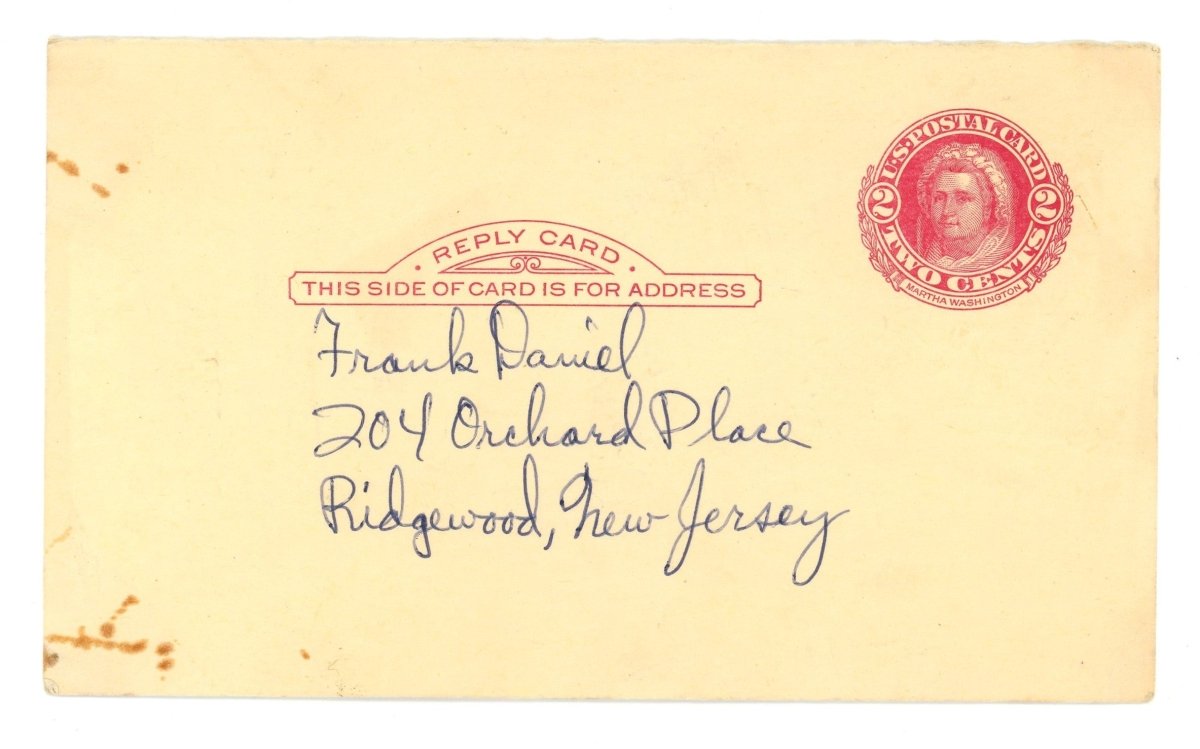 U.S. POSTAL CARD
2 2
TWO CENTS
MARTHA WASHINGTON
· REPLY CARD ·
THIS SIDE OF CARD IS FOR ADDRESS
Frank Daniel
204 Orchard Place
Ridgewood, New Jersey